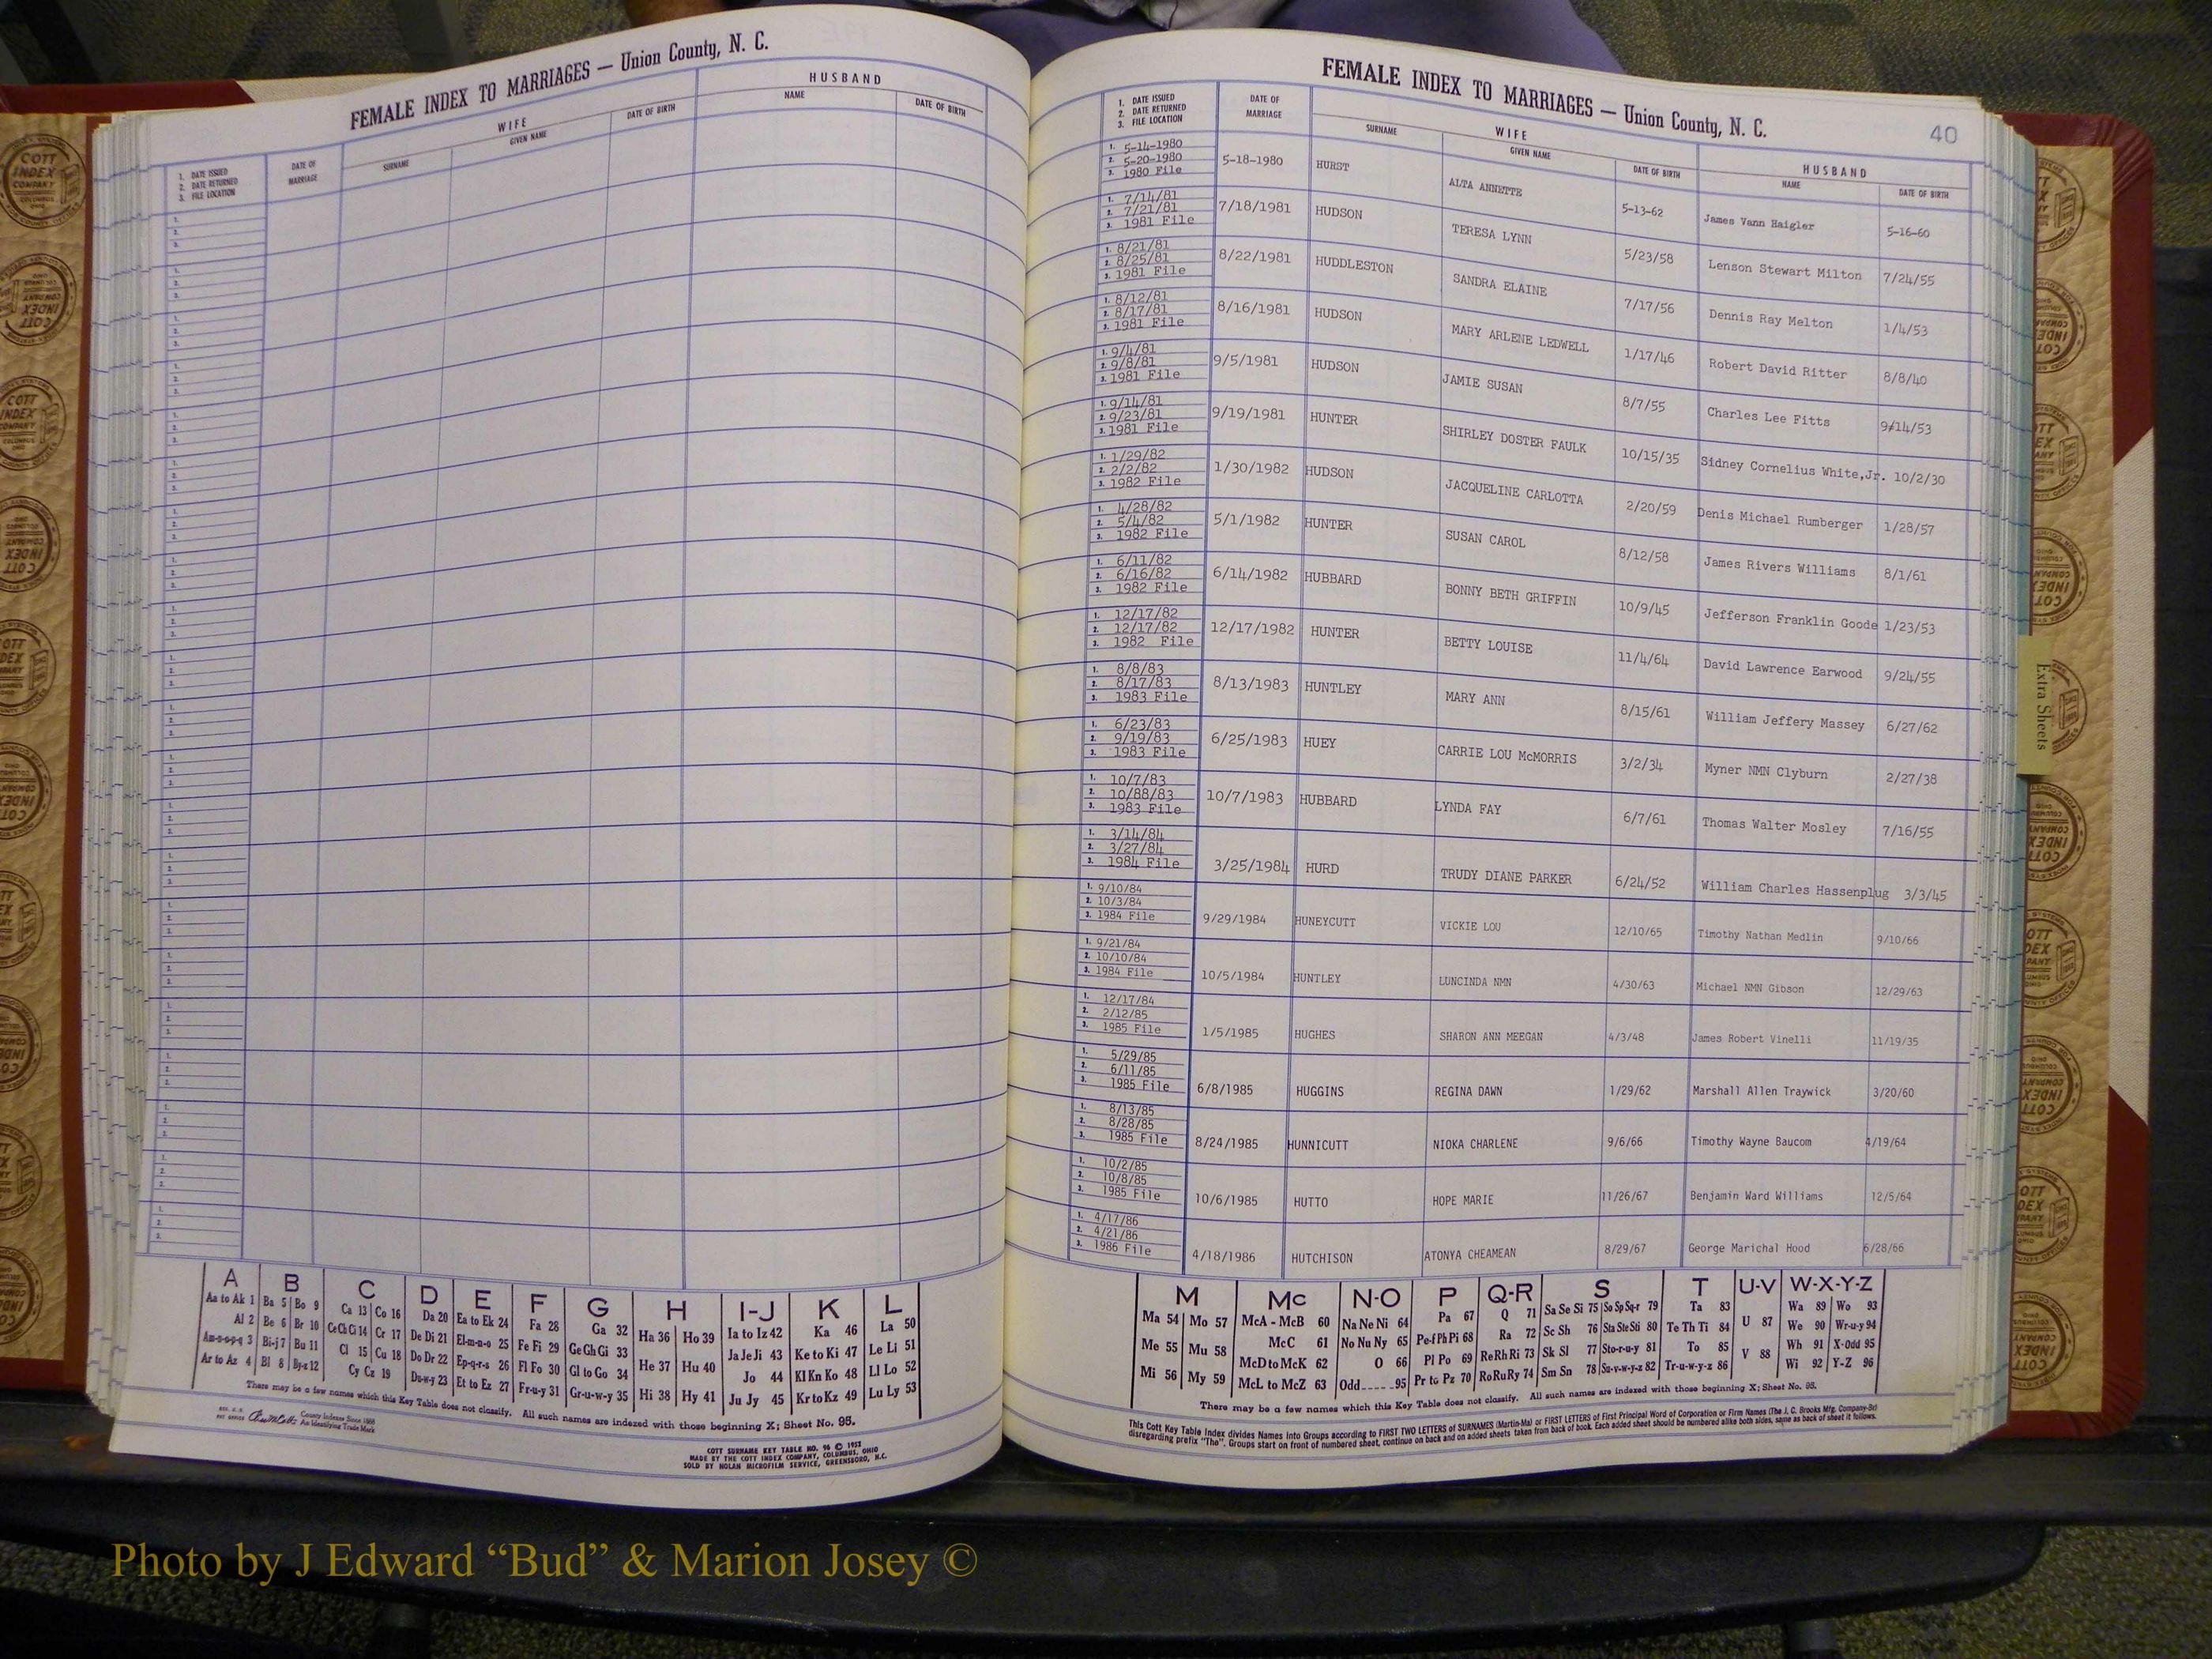 FEMALE INDEX TO MARRIAGES — Union County, N. C.
HUSBAND
WIFE
NAME
DATE OF BIRTH
DATE OF BIRTH
GIVEN NAME
SURNAME
DATE OF MARRIAGE
1. DATE ISSUED
2. DATE RETURNED
3. FILE LOCATION
A B C D E F G H I-J K L
Aa to Ak 1 Ba 5 Bo 9 Ca 13 Co 16 Da 20 Ea to Ek 24 Fa 28 Ga 32 Ha 36 Ho 39 Ia to Iz 42 Ka 46 La 50
Al 2 Be 6 Br 10 Ce Ch Ci 14 Cr 17 De Di 21 El-m-n-o 25 Fe Fi 29 Ge Gh Gi 33 He 37 Hu 40 Ja Je Ji 43 Ke to Ki 47 Le Li 51
Am-n-o-p-q 3 Bi-j 7 Bu 11 Cl 15 Cu 18 Do Dr 22 Ep-q-r-s 26 Fl Fo 30 Gl to Go 34 Hi 38 Hy 41 Jo 44 Kl Kn Ko 48 Ll Lo 52
Ar to Az 4 Bl 8 By-z 12 Cy Cz 19 Du-w-y 23 Et to Ez 27 Fr-u-y 31 Gr-u-w-y 35 Ju Jy 45 Kr to Kz 49 Lu Ly 53
There may be a few names which this Key Table does not classify. All such names are indexed with those beginning X; Sheet No. 95.
County Indexes Since 1888
An Identifying Trade Mark
COTT SURNAME KEY TABLE NO. 96 © 1952
MADE BY THE COTT INDEX COMPANY, COLUMBUS, OHIO
SOLD BY NOLAN MICROFILM SERVICE, GREENSBORO, N.C.
FEMALE INDEX TO MARRIAGES — Union County, N. C.
40
1. DATE ISSUED
2. DATE RETURNED
3. FILE LOCATION
DATE OF MARRIAGE
WIFE
SURNAME
GIVEN NAME
DATE OF BIRTH
HUSBAND
NAME
DATE OF BIRTH
1. 5-14-1980
2. 5-20-1980
3. 1980 File
5-18-1980 HURST ALTA ANNETTE 5-13-62 James Vann Haigler 5-16-60
1. 7/14/81
2. 7/21/81
3. 1981 File
7/18/1981 HUDSON TERESA LYNN 5/23/58 Lenson Stewart Milton 7/24/55
1. 8/21/81
2. 8/25/81
3. 1981 File
8/22/1981 HUDDLESTON SANDRA ELAINE 7/17/56 Dennis Ray Melton 1/4/53
1. 8/12/81
2. 8/17/81
3. 1981 File
8/16/1981 HUDSON MARY ARLENE LEDWELL 1/17/46 Robert David Ritter 8/8/40
1. 9/4/81
2. 9/8/81
3. 1981 File
9/5/1981 HUDSON JAMIE SUSAN 8/7/55 Charles Lee Fitts 9/14/53
1. 9/14/81
2. 9/23/81
3. 1981 File
9/19/1981 HUNTER SHIRLEY DOSTER FAULK 10/15/35 Sidney Cornelius White,Jr. 10/2/30
1. 1/29/82
2. 2/2/82
3. 1982 File
1/30/1982 HUDSON JACQUELINE CARLOTTA 2/20/59 Denis Michael Rumberger 1/28/57
1. 4/28/82
2. 5/4/82
3. 1982 File
5/1/1982 HUNTER SUSAN CAROL 8/12/58 James Rivers Williams 8/1/61
1. 6/11/82
2. 6/16/82
3. 1982 File
6/14/1982 HUBBARD BONNY BETH GRIFFIN 10/9/45 Jefferson Franklin Goode 1/23/53
1. 12/17/82
2. 12/17/82
3. 1982 File
12/17/1982 HUNTER BETTY LOUISE 11/4/64 David Lawrence Earwood 9/24/55
1. 8/8/83
2. 8/17/83
3. 1983 File
8/13/1983 HUNTLEY MARY ANN 8/15/61 William Jeffery Massey 6/27/62
1. 6/23/83
2. 9/19/83
3. 1983 File
6/25/1983 HUEY CARRIE LOU McMORRIS 3/2/34 Myner NMN Clyburn 2/27/38
1. 10/7/83
2. 10/88/83
3. 1983 File
10/7/1983 HUBBARD LYNDA FAY 6/7/61 Thomas Walter Mosley 7/16/55
1. 3/14/84
2. 3/27/84
3. 1984 File
3/25/1984 HURD TRUDY DIANE PARKER 6/24/52 William Charles Hassenplug 3/3/45
1. 9/10/84
2. 10/3/84
3. 1984 File
9/29/1984 HUNEYCUTT VICKIE LOU 12/10/65 Timothy Nathan Medlin 9/10/66
1. 9/21/84
2. 10/10/84
3. 1984 File
10/5/1984 HUNTLEY LUNCINDA NMN 4/30/63 Michael NMN Gibson 12/29/63
1. 12/17/84
2. 2/12/85
3. 1985 File
1/5/1985 HUGHES SHARON ANN MEEGAN 4/3/48 James Robert Vinelli 11/19/35
1. 5/29/85
2. 6/11/85
3. 1985 File
6/8/1985 HUGGINS REGINA DAWN 1/29/62 Marshall Allen Traywick 3/20/60
1. 8/13/85
2. 8/28/85
3. 1985 File
8/24/1985 HUNNICUTT NIOKA CHARLENE 9/6/66 Timothy Wayne Baucom 4/19/64
1. 10/2/85
2. 10/8/85
3. 1985 File
10/6/1985 HUTTO HOPE MARIE 11/26/67 Benjamin Ward Williams 12/5/64
1. 4/17/86
2. 4/21/86
3. 1986 File
4/18/1986 HUTCHISON ATONYA CHEAMEAN 8/29/67 George Marichal Hood 6/28/66
M Mc N-O P Q-R S T U-V W-X-Y-Z
Ma 54 Mo 57 McA - McB 60 Na Ne Ni 64 Pa 67 Q 71 Sa Se Si 75 So Sp Sq-r 79 Ta 83 U 87 Wa 89 Wo 93
Me 55 Mu 58 McC 61 No Nu Ny 65 Pe-f Ph Pi 68 Ra 72 Sc Sh 76 Sta Ste Sti 80 Te Th Ti 84 V 88 We 90 Wr-u-y 94
Mi 56 My 59 McD to McK 62 O 66 Pl Po 69 Re Rh Ri 73 Sk Sl 77 Sto-r-u-y 81 To 85 Wh 91 X-Odd 95
McL to McZ 63 Odd 95 Pr to Pz 70 Ro Ru Ry 74 Sm Sn 78 Su-v-w-y-z 82 Tr-u-w-y-z 86 Wi 92 Y-Z 96
There may be a few names which this Key Table does not classify. All such names are indexed with those beginning X; Sheet No. 95.
This Cott Key Table Index divides Names into Groups according to FIRST TWO LETTERS of SURNAMES (Martin-Ma) or FIRST LETTERS of First Principal Word of Corporation or Firm Names (The J. C. Brooks Mfg. Company-Br)
disregarding prefix "The". Groups start on front of numbered sheet, continue on back and on added sheets taken from back of book. Each added sheet should be numbered alike both sides, same as back of sheet it follows.
Extra Sheets
Photo by J Edward “Bud” & Marion Josey ©